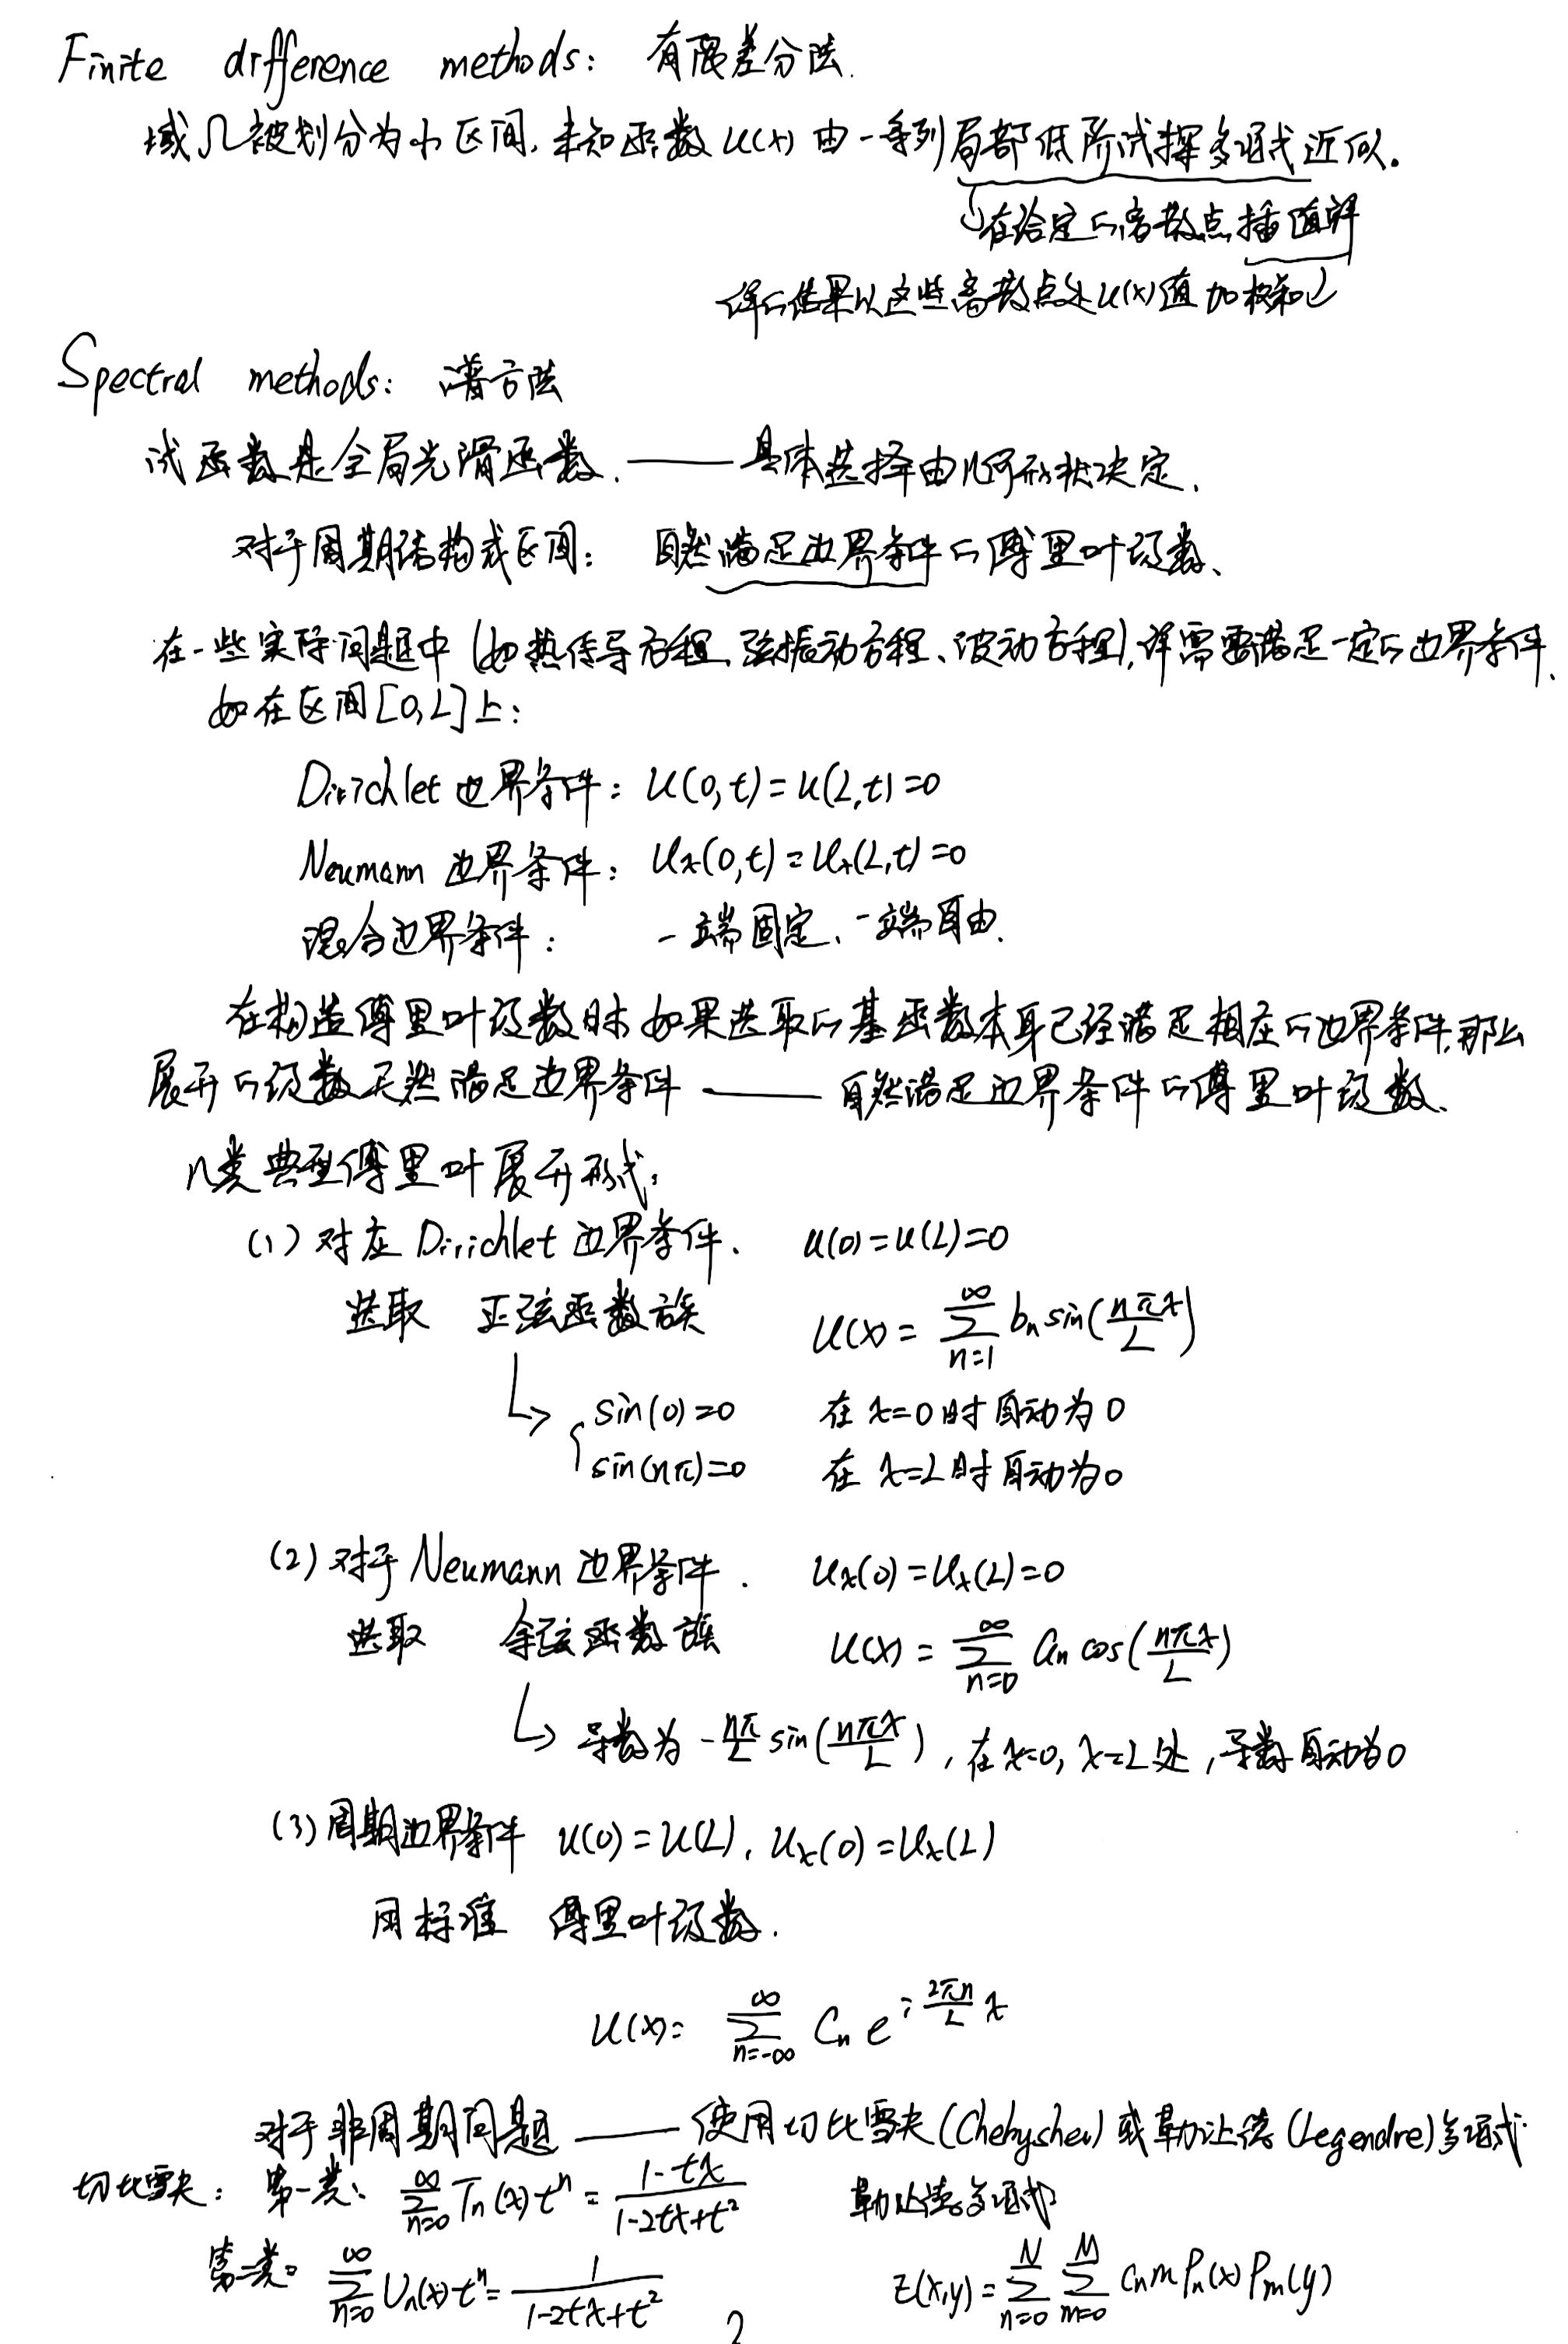 Finite difference methods: 有限差分法.
域Ω被划分为小区间,未知函数u(x)由一系列局部低阶试探多项式近似.
在给定的离散点插值解
得的结果以这些离散点处u(x)值加权和
Spectral methods: 谱方法
试函数是全局光滑函数. —— 具体选择由几何形状决定.
对于周期结构或区间: 自然满足边界条件的傅里叶级数、
在一些实际问题中(如热传导方程、弦振动方程、波动方程),详需要满足一定的边界条件、
如在区间[0,L]上:
Dirichlet 边界条件: u(0,t)=u(L,t)=0
Neumann 边界条件: uₓ(0,t)=uₓ(L,t)=0
混合边界条件: 一端固定、一端自由.
在构造傅里叶级数时 如果选取的基函数本身已经满足相应的边界条件,那么
展开的级数天然满足边界条件 —— 自然满足边界条件的傅里叶级数、
几类典型傅里叶展开形式:
(1) 对应 Dirichlet 边界条件. u(0)=u(L)=0
选取 正弦函数族 u(x) = ∑_{n=1}^{∞} bₙ sin(nπx/L)
↳ { sin(0)=0 在 x=0 时自动为0
sin(nπ)=0 在 x=L 时自动为0
(2) 对于 Neumann 边界条件. uₓ(0)=uₓ(L)=0
选取 余弦函数族 u(x) = ∑_{n=0}^{∞} aₙ cos(nπx/L)
↳ 导数为 -nπ/L sin(nπx/L), 在x=0, x=L处, 导数自动为0
(3) 周期边界条件 u(0)=u(L), uₓ(0)=uₓ(L)
用标准 傅里叶级数.
u(x)= ∑_{n=-∞}^{∞} Cₙ e^{i 2πn/L x}
对于非周期问题 —— 使用切比雪夫(Chebyshev)或勒让德(Legendre)多项式.
切比雪夫: 第一类: ∑_{n=0}^{∞} Tₙ(x)tⁿ = (1-tx)/(1-2tx+t²) 勒让德多项式
第二类: ∑_{n=0}^{∞} Uₙ(x)tⁿ = 1/(1-2tx+t²) z(x,y)=∑_{n=0}^{N} ∑_{m=0}^{M} Cnm Pₙ(x) Pₘ(y)